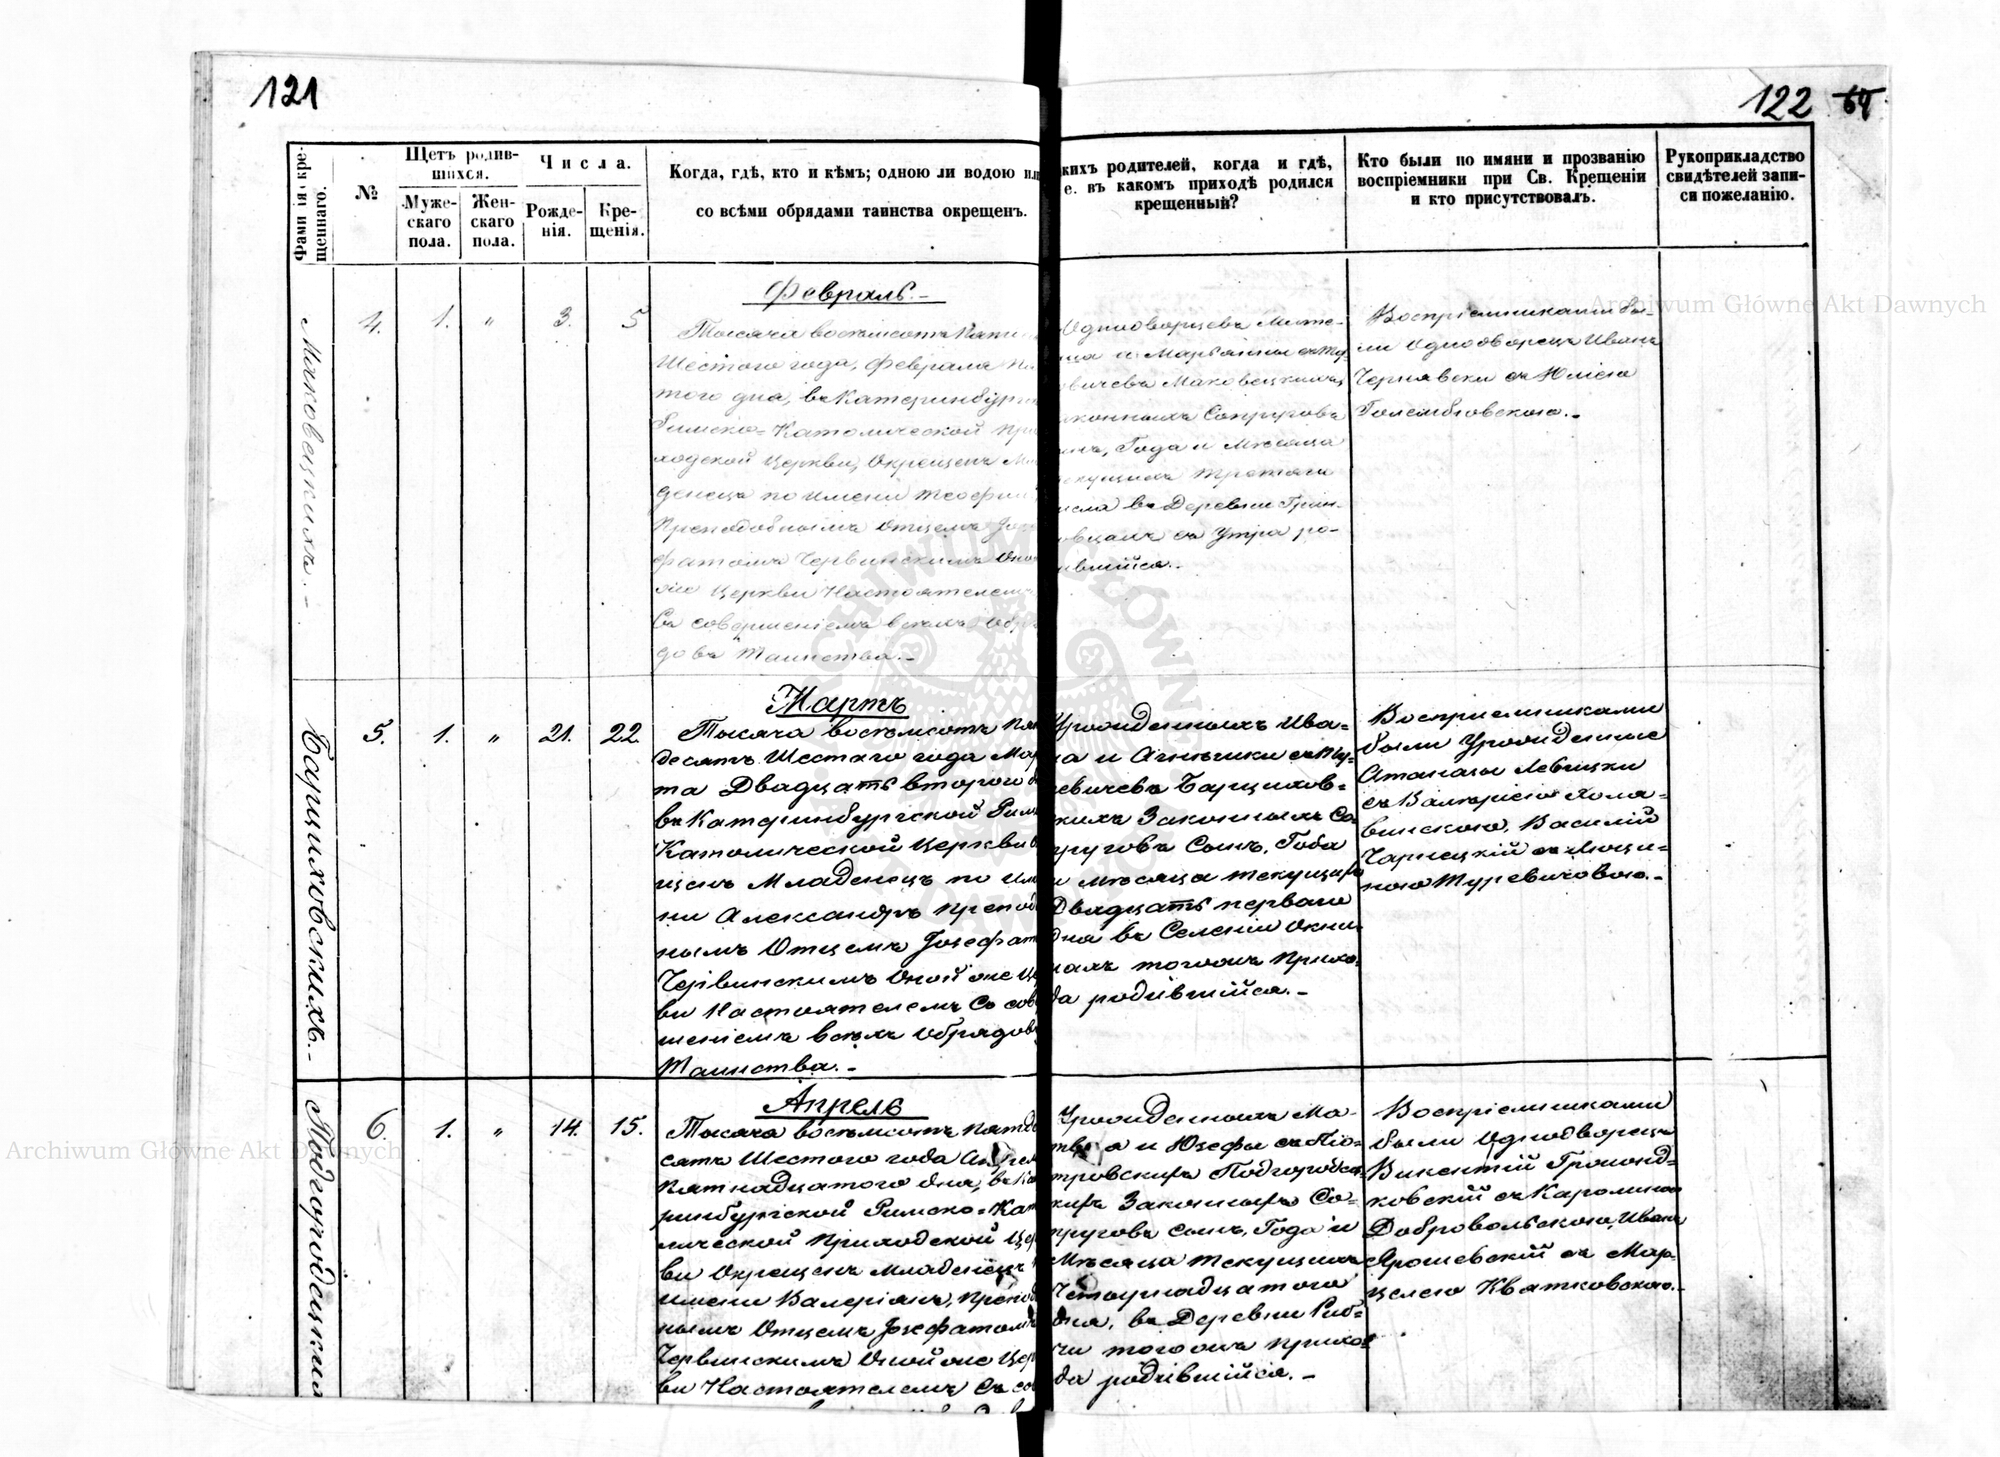 121
122 64
Фамилія кре-
щеннаго.
№
Щетъ родив-
шихся.
Муже-
скаго
пола.
Жен-
скаго
пола.
Числа.
Рожде-
нія.
Кре-
щенія.
Когда, гдѣ, кто и кѣмъ; одною ли водою ил
со всѣми обрядами таинства окрещенъ.
кихъ родителей, когда и гдѣ,
е. въ какомъ приходѣ родился
крещенный?
Кто были по имяни и прозванію
воспріемники при Св. Крещеніи
и кто присутствовалъ.
Рукоприкладство
свидѣтелей запи-
си пожеланію.
Маковецкихъ.-
4. 1. " 3. 5
Февраль.-
Тысяча восемьсотъ Пяти
Шестого года, Февраля Пя
того дна, въ Катеринбург
Римско=Католической При
ходской Церкви, Окрещенъ Мла
денецъ по имени Теофил
Преподобнымъ Отцемъ Іозе
фатомъ Червинскимъ Оной
же Церкви Настоятелемъ
Съ совершеніемъ всѣхъ Обря
довъ Таинства.-
Однодворцевъ
на и Марьянны съ
вичевъ Маковецкихъ
аконныхъ Супруговъ
ынъ, Года и Мѣсяца
екущихъ Третяго
исла въ Деревни
съ Утра ро-
ившійся.-
Воспріемниками бы-
ли Однодворецъ Иванъ
Чернявски съ Юліею
Голембіовскою.-
Барциховскихъ.-
5. 1. " 21. 22.
Мартъ
Тысяча восемьсотъ Пят
десятъ Шестаго года Мар
та Двадцать второго д
въ Катеринбургской Рим
Католической Церкви О
щенъ Младенецъ по Име
ни Александръ Преподоб
нымъ Отцемъ Іозефат
Червинскимъ Оной же Цер
ви Настоятелемъ Съ сов
шеніемъ всѣхъ Обрядовъ
Таинства.-
Урожденныхъ Ива=
на и Агнѣшки съ Ту=
евичевъ Барцихов=
кихъ Законныхъ Со
пруговъ Сынъ, Года
и Мѣсяца текущихъ
Двадцать перваго
дна въ Селеніи Окни
нахъ тогожъ Прихо
да родившійся.-
Воспріемниками
были Урожденные
Атанацы Левицки
съ Валеріею Холя=
винскою, Василій
Чарнецкій съ Люци=
ною Туревичовою.-
Подгородецкихъ
6. 1. " 14. 15.
Апрель
Тысяча восемьсотъ Пятде
сятъ Шестого года Апрел
Пятнадцатого дна, въ Ка
ринбургской Римско=Кат
лической Приходской Цер
ви Окрещенъ Младенецъ
имени Валеріянъ, Препод
нымъ Отцемъ Іозефатомъ
Червинскимъ Оной же Цер
ви Настоятелемъ Съ со
Урожденныхъ Ма-
а и Юзефы съ Піо=
тровскихъ Подгородец=
кихъ Законныхъ Со=
пруговъ Сынъ, Года и
Мѣсяца текущихъ
Четырнадцатого
дна, въ Деревни Риб=
чи тогожъ Прихо=
да родившійся.-
Воспріемниками
были Однодворецъ
Викентій Громад=
ковскій съ Каролиною
Добровольскою, Иванъ
Ярошевскій съ Мар=
целею Квятковскою.-
Archiwum Główne Akt Dawnych
Archiwum Główne Akt Dawnych